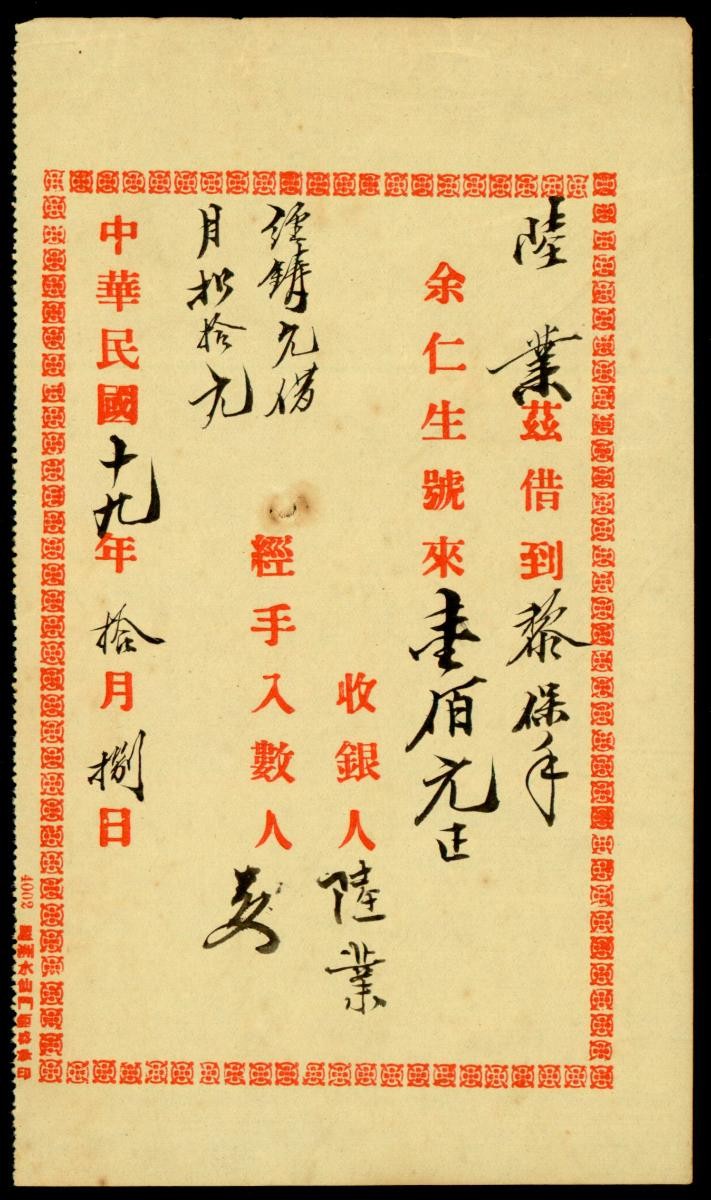 陸業茲借到黎保手
余仁生號來壹佰元正
收銀人陸業
經手入數人
元借
月扣拾元
中華民國十九年拾月捌日
4002 星洲水仙門 承印